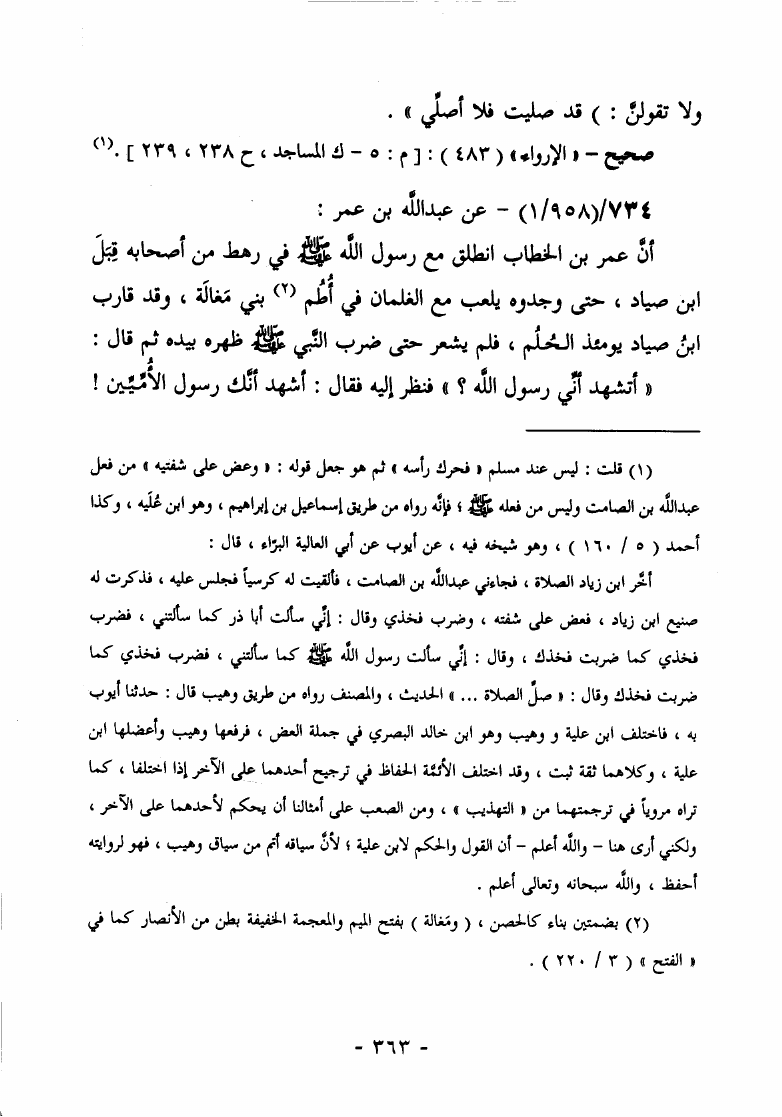 ولا تقولنَّ : ) قد صليت فلا أصلِّي » .
صحيح – « الإرواء» ( ٤٨٣ ) : [ م : ٥ – ك المساجد ، ح ٢٣٨ ، ٢٣٩ ] .(١)
٧٣٤/(١/٩٥٨) – عن عبدالله بن عمر :
أنَّ عمر بن الخطاب انطلق مع رسول الله ﷺ في رهط من أصحابه قِبَلَ
ابن صياد ، حتى وجدوه يلعب مع الغلمان في أُطُم (٢) بني مَغالَة ، وقد قارب
ابنُ صياد يومئذ الـحُلُم ، فلم يشعر حتى ضرب النَّبي ﷺ ظهره بيده ثم قال :
« أتشهد أنِّي رسول الله ؟ » فنظر إليه فقال : أشهد أنَّك رسول الأُمِّيِّين !
(١) قلت : ليس عند مسلم « فحرك رأسه » ثم هو جعل قوله : « وعض على شفتيه » من فعل
عبدالله بن الصامت وليس من فعله ﷺ ؛ فإنَّه رواه من طريق إسماعيل بن إبراهيم ، وهو ابن عُلَيه ، وكذا
أحمد ( ٥ / ١٦٠ ) ، وهو شيخه فيه ، عن أيوب عن أبي العالية البرّاء ، قال :
أخَّر ابن زياد الصلاة ، فجاءني عبدالله بن الصامت ، فألقيت له كرسياً فجلس عليه ، فذكرت له
صنيع ابن زياد ، فعض على شفته ، وضرب فخذي وقال : إنِّي سألت أبا ذر كما سألتني ، فضرب
فخذي كما ضربت فخذك ، وقال : إنِّي سألت رسول الله ﷺ كما سألتني ، فضرب فخذي كما
ضربت فخذك وقال : « صلِّ الصلاة ... » الحديث ، والمصنف رواه من طريق وهيب قال : حدثنا أيوب
به ، فاختلف ابن علية و وهيب وهو ابن خالد البصري في جملة العض ، فرفعها وهيب وأعضلها ابن
علية ، وكلاهما ثقة ثبت ، وقد اختلف الأئمَّة الحفاظ في ترجيح أحدهما على الآخر إذا اختلفا ، كما
تراه مروياً في ترجمتهما من « التهذيب » ، ومن الصعب على أمثالنا أن يحكم لأحدهما على الآخر ،
ولكني أرى هنا – والله أعلم – أن القول والحكم لابن علية ؛ لأنَّ سياقه أتم من سياق وهيب ، فهو لروايته
أحفظ ، والله سبحانه وتعالى أعلم .
(٢) بضمتين بناء كالحصن ، ( ومَغالة ) بفتح الميم والمعجمة الخفيفة بطن من الأنصار كما في
« الفتح » ( ٣ / ٢٢٠ ) .
- ٣٦٣ -